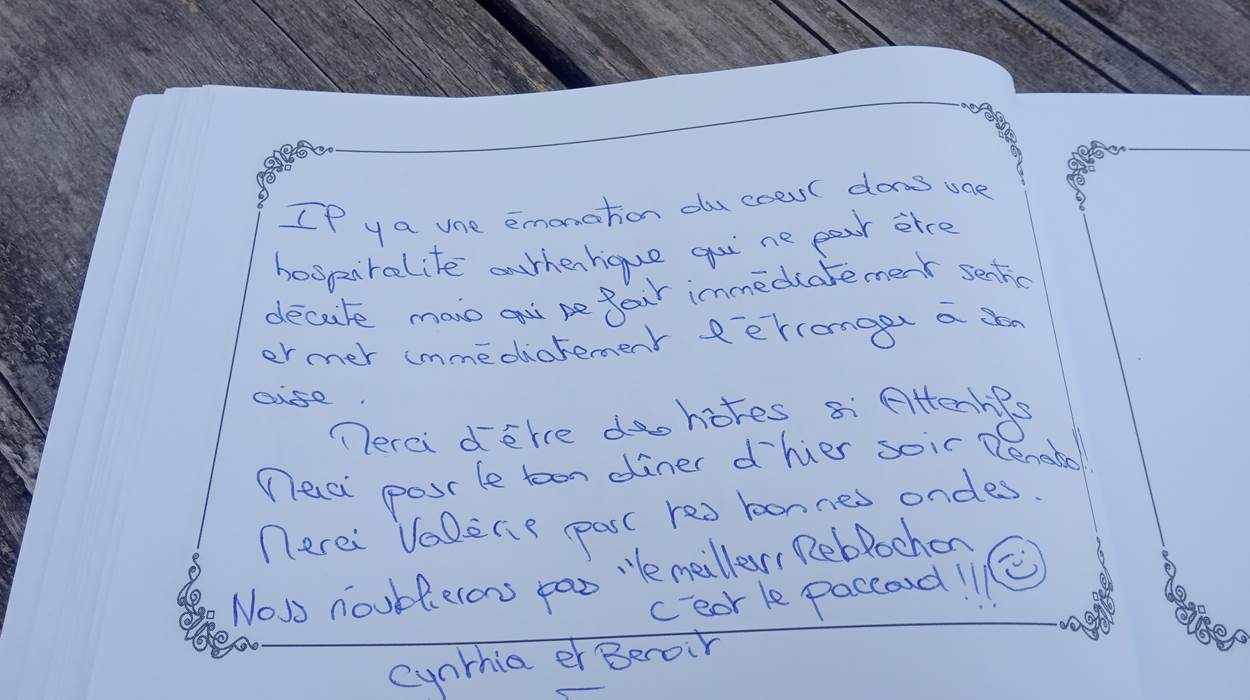 Il y a une émanation du coeur dans une
hospitalité authentique qui ne peut être
décrite mais qui se fait immédiatement sentir
et met immédiatement l'étranger à son
aise.
Merci d'être des hôtes si Attentifs
Merci pour le bon dîner d'hier soir Renato!!
Merci Valérie pour tes bonnes ondes.
Nous n'oublierons pas "le meilleur Reblochon
c'est le paccard!!!
Cynthia et Benoit